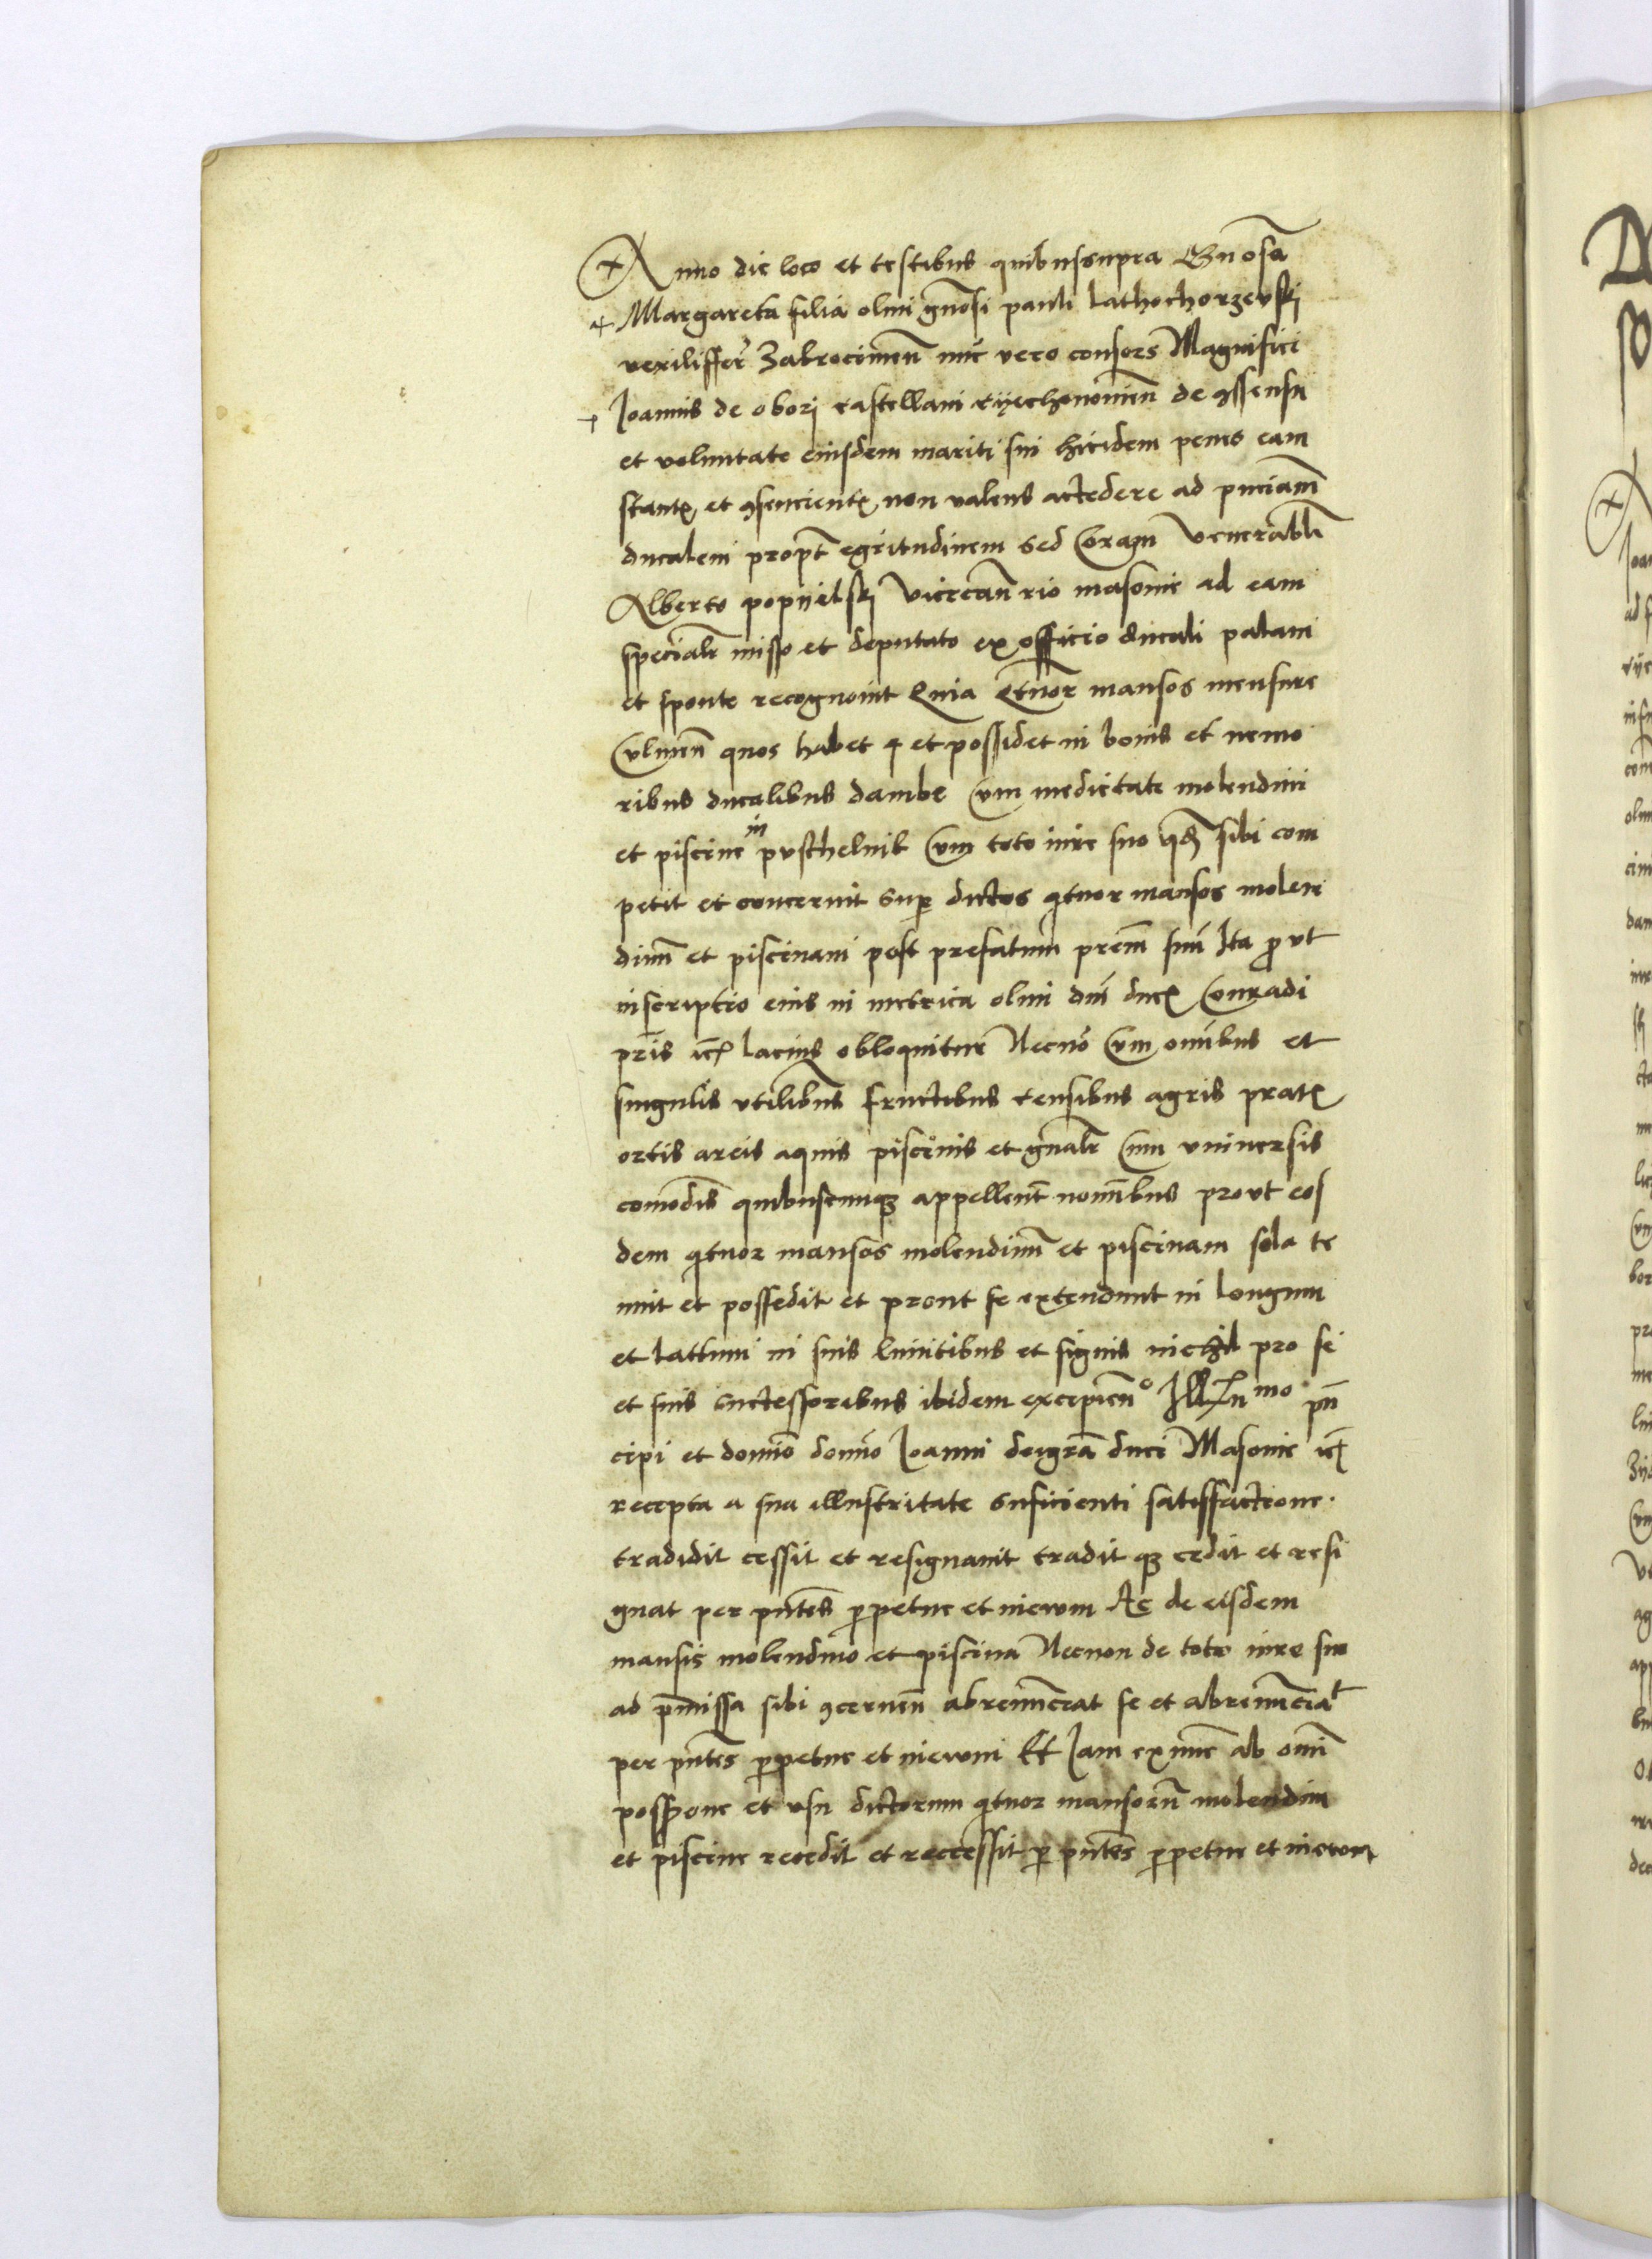 Anno die loco et testibus quibussupra Gnosa
Margareta filia olim gnosi pauli lathochorzevski
vexilifferi Zakrocimen nuc vero consors Magnifici
Joannis de obori castellani cijechonomien de ꝯssensu
et voluntate eiusdem mariti sui hicidem penes eam
stantꝭ et ꝯsencientꝭ non valens accedere ad pnciam
ducalem propt egritudinem sed Coram venerabli
Alberto popijelski vicecanrio masovie ad eam
specialr misso et deputato ex officio ducali palam
et sponte recognovit Quia Qtuor mansos mensure
Culmen quos habet et possidet in bonis et nemo
ribus ducalibus dambe Cum medietate molendini
et piscine in pvschelnik Cum toto iure suo qd sibi com
petit et concernit Super dictos qtuor mansos molen
dinu et piscinam post prefatum prem suu Ita ꝓvt
inscriptio eius in metrica olim dni ducꝭ Conradi
pris ꝛcꝭ lacius obloquitur Necno Cum omibus et
singulis vtilibus fructibus censibus agris pratꝭ
ortis areis aquis piscinis et gnalr Cum vniversis
comodis quibuscumqꝫ appellent nomibus provt eos
dem qtuor mansos molendinu et piscinam sola te
nuit et possedit et prout se extendunt in longum
et lattum in suis limitibus et signis nichil pro se
et suis successoribus ibidem excepien° Illmo prin
cipi et domio domio Joanni deigra duci Masovie ꝛcꝭ
recepta a sua illustritate suficienti satisffactione.
tradidit cessit et resignavit tradit qꝫ cedit et resi
gnat per pntes ꝑpetue et inevum Ac de eisdem
mansis molendino et piscina Necnon de toto iure suo
ad pmissa sibi ꝯcernen abrenunciat se et abrenunciat
per pntes ꝑpetue et inevum Et Jam exnunc ab omi
possione et vsu dictorum qtuor mansoru molendini
et piscine recedit et reccessit ꝑ pntes ꝑpetue et inevom